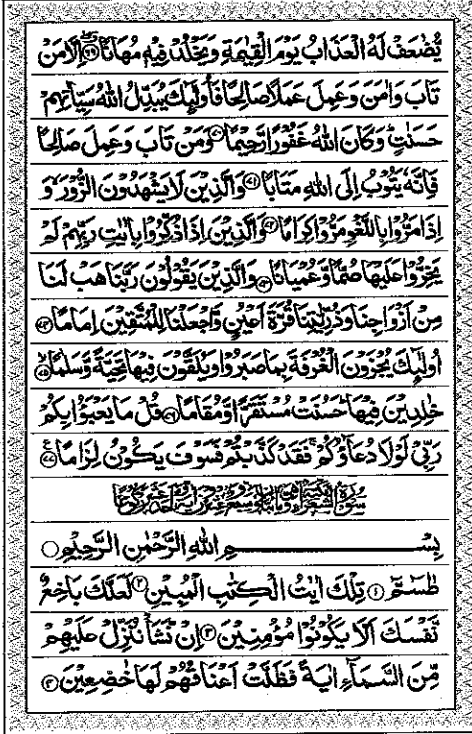 يُّضٰعَفْ لَهُ الْعَذَابُ يَوْمَ الْقِيٰمَةِ وَيَخْلُدْ فِيْهٖ مُهَانًا ﴿۶۹﴾ اِلَّا مَنْ
تَابَ وَاٰمَنَ وَعَمِلَ عَمَلًا صَالِحًا فَاُولٰٓئِكَ يُبَدِّلُ اللّٰهُ سَيِّاٰتِهِمْ
حَسَنٰتٍ ؕ وَكَانَ اللّٰهُ غَفُوْرًا رَّحِيْمًا ﴿۷۰﴾ وَمَنْ تَابَ وَعَمِلَ صَالِحًا
فَاِنَّهٗ يَتُوْبُ اِلَى اللّٰهِ مَتَابًا ﴿۷۱﴾ وَالَّذِيْنَ لَا يَشْهَدُوْنَ الزُّوْرَ ۙ وَ
اِذَا مَرُّوْا بِاللَّغْوِ مَرُّوْا كِرَامًا ﴿۷۲﴾ وَالَّذِيْنَ اِذَا ذُكِّرُوْا بِاٰيٰتِ رَبِّهِمْ لَمْ
يَخِرُّوْا عَلَيْهَا صُمًّا وَّعُمْيَانًا ﴿۷۳﴾ وَالَّذِيْنَ يَقُوْلُوْنَ رَبَّنَا هَبْ لَنَا
مِنْ اَزْوَاجِنَا وَذُرِّيّٰتِنَا قُرَّةَ اَعْيُنٍ وَّاجْعَلْنَا لِلْمُتَّقِيْنَ اِمَامًا ﴿۷۴﴾
اُولٰٓئِكَ يُجْزَوْنَ الْغُرْفَةَ بِمَا صَبَرُوْا وَيُلَقَّوْنَ فِيْهَا تَحِيَّةً وَّسَلٰمًا ﴿۷۵﴾
خٰلِدِيْنَ فِيْهَا ؕ حَسُنَتْ مُسْتَقَرًّا وَّمُقَامًا ﴿۷۶﴾ قُلْ مَا يَعْبَؤُا بِكُمْ
رَبِّيْ لَوْلَا دُعَآؤُكُمْ ۚ فَقَدْ كَذَّبْتُمْ فَسَوْفَ يَكُوْنُ لِزَامًا ﴿۷۷﴾
بِسْمِ اللّٰهِ الرَّحْمٰنِ الرَّحِيْمِ ○
طٰسٓمّٓ ﴿۱﴾ تِلْكَ اٰيٰتُ الْكِتٰبِ الْمُبِيْنِ ﴿۲﴾ لَعَلَّكَ بَاخِعٌ
نَّفْسَكَ اَلَّا يَكُوْنُوْا مُؤْمِنِيْنَ ﴿۳﴾ اِنْ نَّشَاْ نُنَزِّلْ عَلَيْهِمْ
مِّنَ السَّمَآءِ اٰيَةً فَظَلَّتْ اَعْنَاقُهُمْ لَهَا خٰضِعِيْنَ ﴿۴﴾